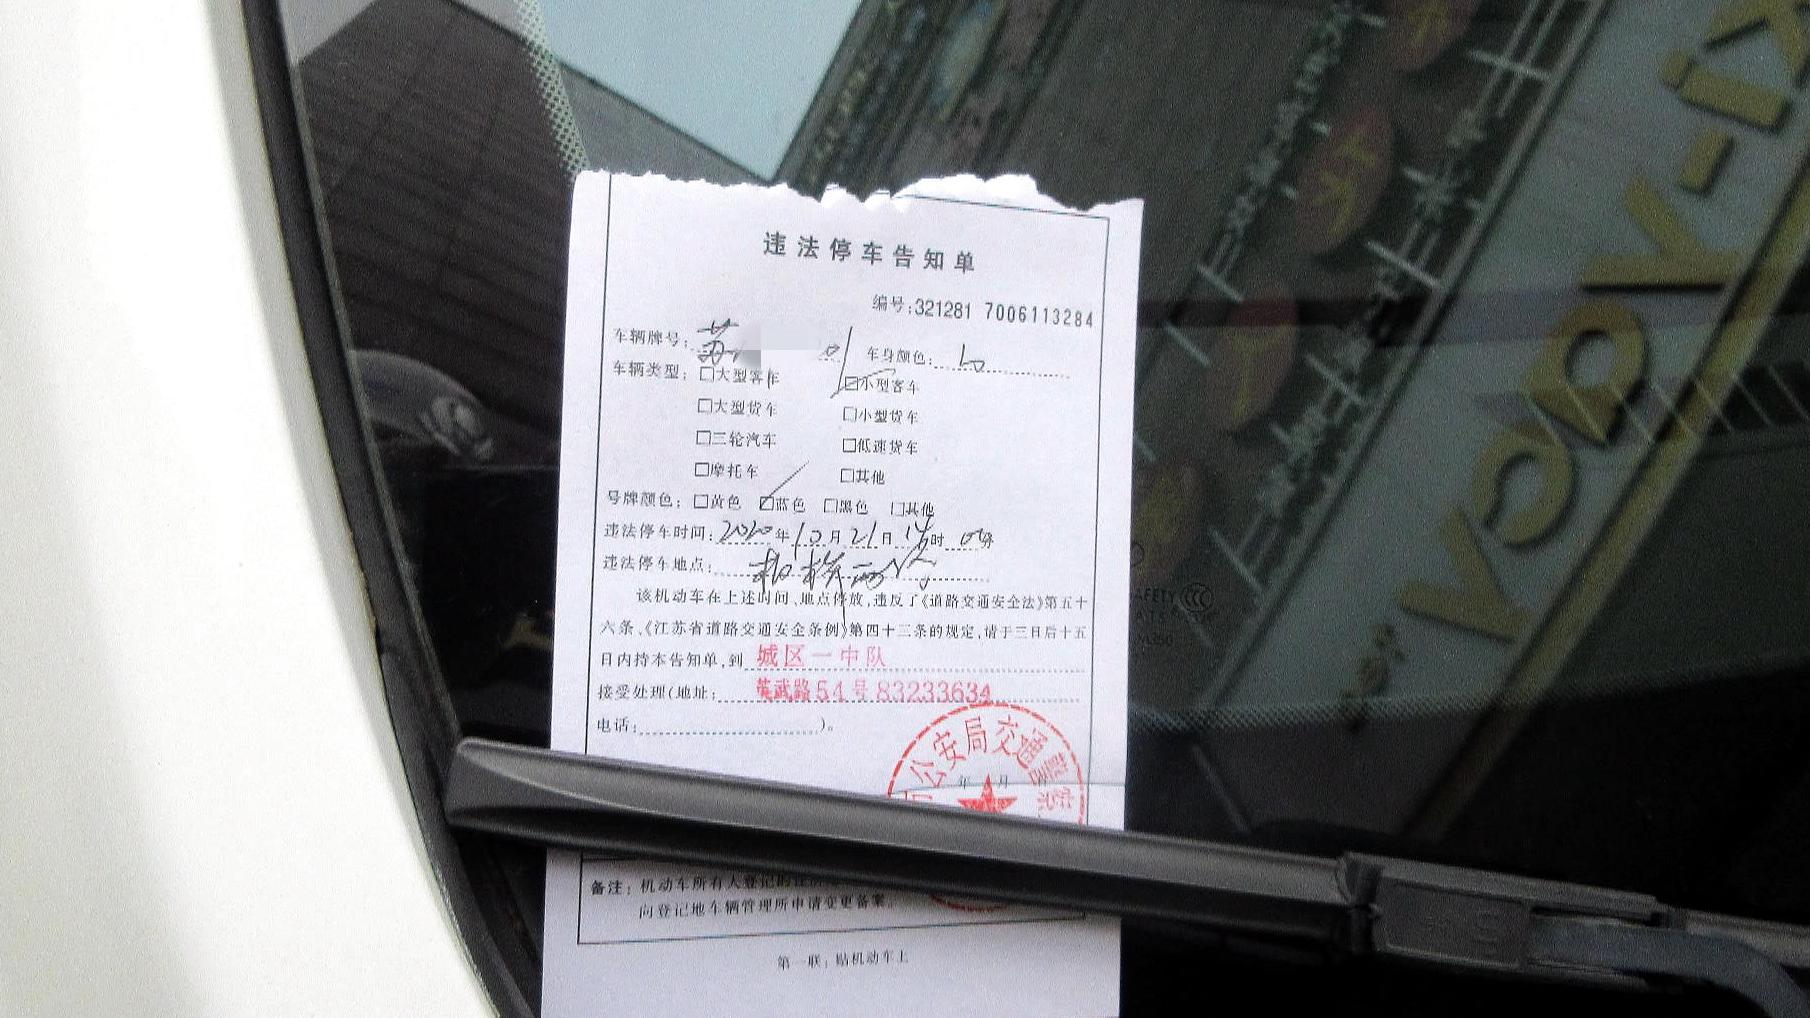 违法停车告知单
编号:321281 7006113284
车辆牌号: 苏 车身颜色: 白
车辆类型: □大型客车 ☑小型客车
□大型货车 □小型货车
□三轮汽车 □低速货车
□摩托车 □其他
号牌颜色: □黄色 ☑蓝色 □黑色 □其他
违法停车时间: 2020年10月21日 时 分
违法停车地点:
该机动车在上述时间、地点停放,违反了《道路交通安全法》第五十
六条、《江苏省道路交通安全条例》第四十三条的规定,请于三日后十五
日内持本告知单,到 城区一中队
接受处理(地址: 英武路54号 83233634
电话: )。
公安局交通警察
年 月
备注: 机动车所有人登记的
向登记地车辆管理所申请变更备案。
第一联:贴机动车上
YOOK-IX
SAFETY